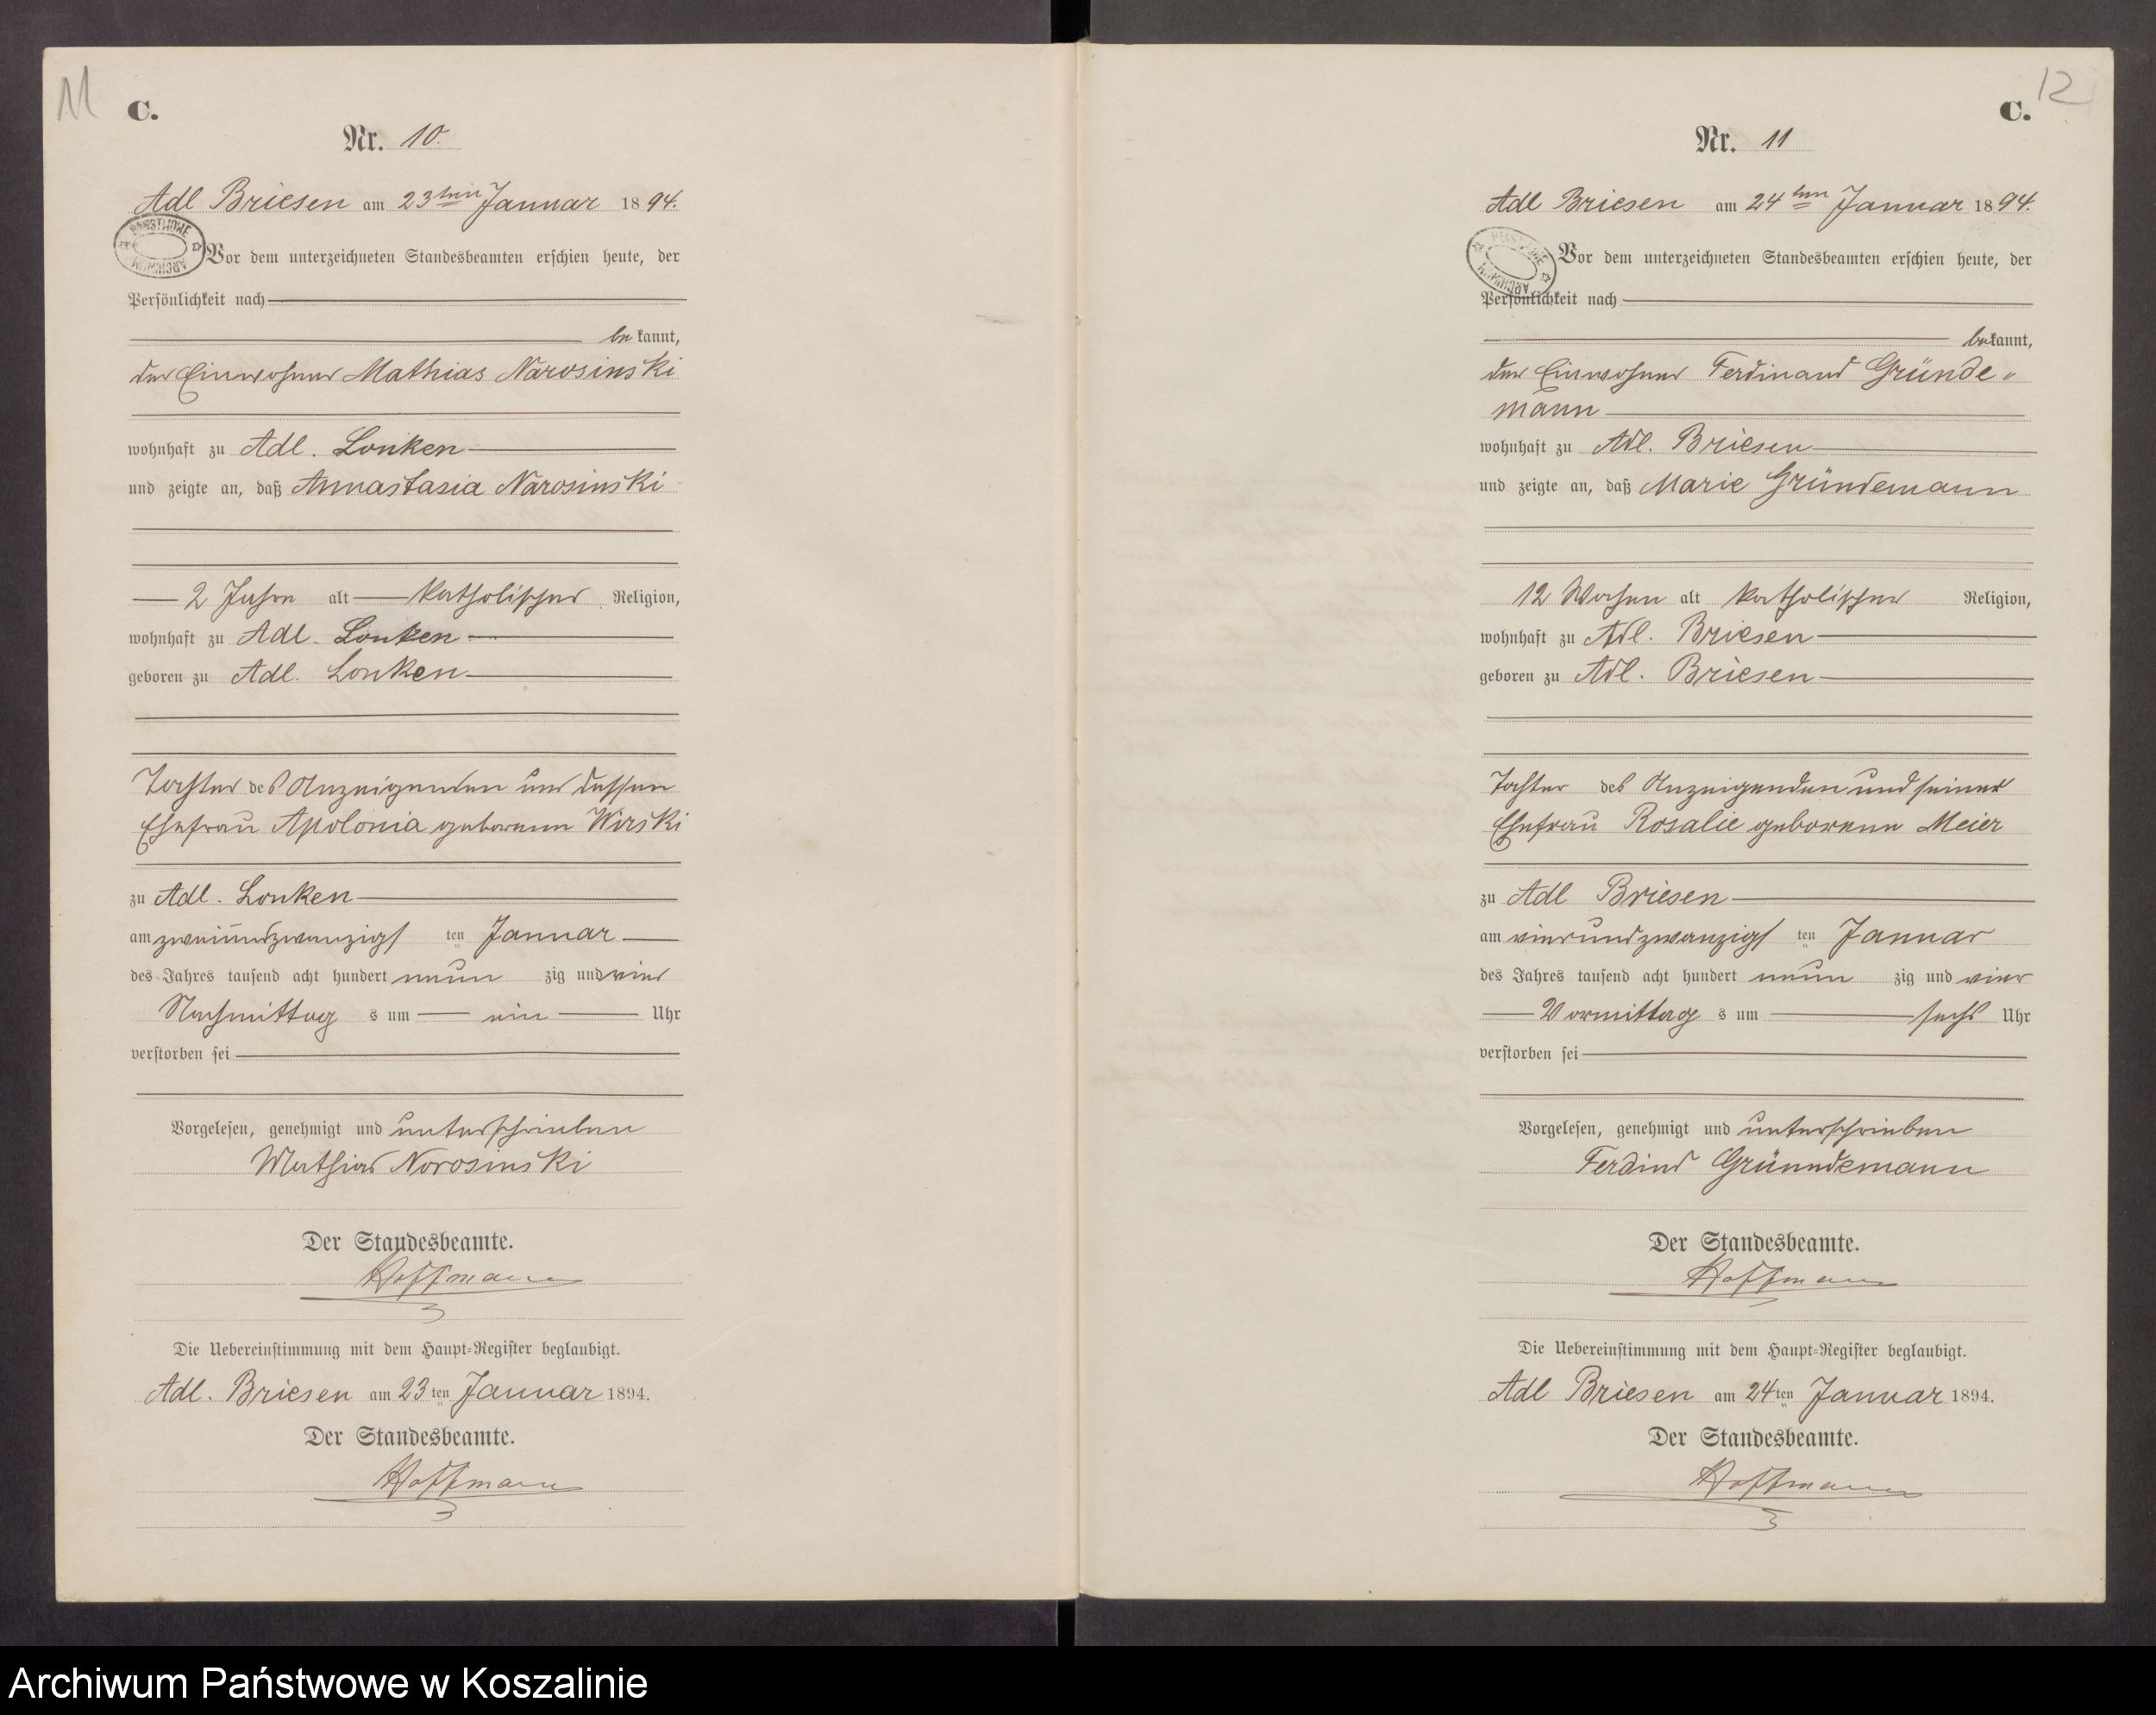 11
C.
Nr. 10.
Adl Briesen am 23ten Januar 1894.
PAŃSTWOWE ARCHIWUM
Vor dem unterzeichneten Standesbeamten erschien heute, der
Persönlichkeit nach
bekannt,
der Einwohner Mathias Narosinski
wohnhaft zu Adl. Lonken
und zeigte an, daß Annastasia Narosinski
2 Jahre alt katholischer Religion,
wohnhaft zu Adl. Lonken
geboren zu Adl. Lonken
Tochter des Anzeigenden und dessen
Ehefrau Apolonia geborenen Wirski
zu Adl. Lonken
am zweiundzwanzigsten Januar
des Jahres tausend acht hundert neunzig und vier
Nachmittags um ein Uhr
verstorben sei
Vorgelesen, genehmigt und unterschrieben
Mathias Norosinski
Der Standesbeamte.
Hoffmann
Die Uebereinstimmung mit dem Haupt-Register beglaubigt.
Adl. Briesen am 23ten Januar 1894.
Der Standesbeamte.
Hoffmann
12
C.
Nr. 11
Adl Briesen am 24ten Januar 1894.
PAŃSTWOWE ARCHIWUM
Vor dem unterzeichneten Standesbeamten erschien heute, der
Persönlichkeit nach
bekannt,
der Einwohner Ferdinand Gründe-
mann
wohnhaft zu Adl. Briesen
und zeigte an, daß Marie Gründemann
12 Wochen alt katholischer Religion,
wohnhaft zu Adl. Briesen
geboren zu Adl. Briesen
Tochter des Anzeigenden und seiner
Ehefrau Rosalie geborene Meier
zu Adl Briesen
am vierundzwanzigsten Januar
des Jahres tausend acht hundert neunzig und vier
Vormittags um sechs Uhr
verstorben sei
Vorgelesen, genehmigt und unterschrieben
Ferdind Grünndemann
Der Standesbeamte.
Hoffmann
Die Uebereinstimmung mit dem Haupt-Register beglaubigt.
Adl Briesen am 24ten Januar 1894.
Der Standesbeamte.
Hoffmann
Archiwum Państwowe w Koszalinie